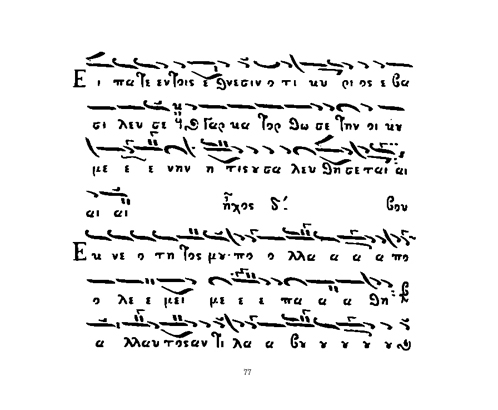 Ε ι πα τε εν τοις ε θνεσιν ο τι κυ ρι ος ε βα
σι λευ σε γαρ κα τορ θω σε την οι κȣ
με ε ε νην η τις ȣ σα λευ θη σε ται αι
αι αι ἦχος δ΄. βȣ
Ε κ νε ο τη τος μȣ· πο ο λλα α α α πο
ο λε ε μει με ε ε πα α α θη·
α λλαυ τος αν τι λα α βȣ ȣ ȣ ȣ ȣ
77